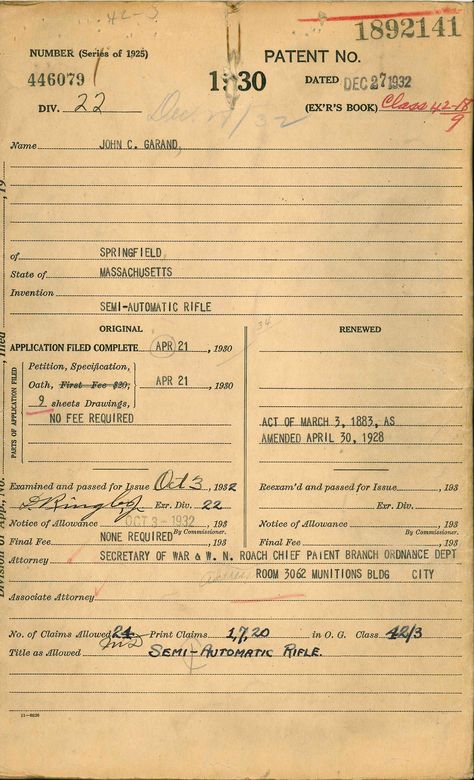 42-3
1892141
NUMBER (Series of 1925)
PATENT NO.
446079
1930
DATED DEC 27 1932
DIV. 22
Dec 27/32
(EX'R'S BOOK) Class 42-18
9
Name JOHN C. GARAND,
of SPRINGFIELD,
State of MASSACHUSETTS
Invention
SEMI-AUTOMATIC RIFLE
ORIGINAL
RENEWED
34
APPLICATION FILED COMPLETE APR 21, 1930
, 193
PARTS OF APPLICATION FILED
Petition, Specification,
Oath, First Fee $20, APR 21, 1930
9 sheets Drawings,
NO FEE REQUIRED
ACT OF MARCH 3, 1883, AS
AMENDED APRIL 30, 1928
Examined and passed for Issue Oct 3, 1932
Reexam'd and passed for Issue, 193
Exr. Div. 22
Exr. Div.
Notice of Allowance OCT 3 - 1932, 193
Notice of Allowance, 193
By Commissioner.
By Commissioner.
Final Fee NONE REQUIRED, 193
Final Fee, 193
Attorney SECRETARY OF WAR & W. N. ROACH CHIEF PATENT BRANCH ORDNANCE DEPT
ROOM 3062 MUNITIONS BLDG CITY
Associate Attorney
No. of Claims Allowed 24 Print Claims 1,7,20 in O. G. Class 42/3
Title as Allowed SEMI-AUTOMATIC RIFLE.